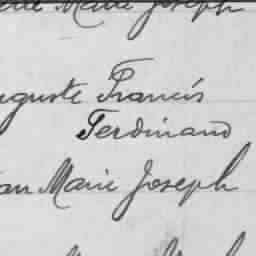 Marie Joseph
Auguste Francis
Ferdinand
Jean Marie Joseph